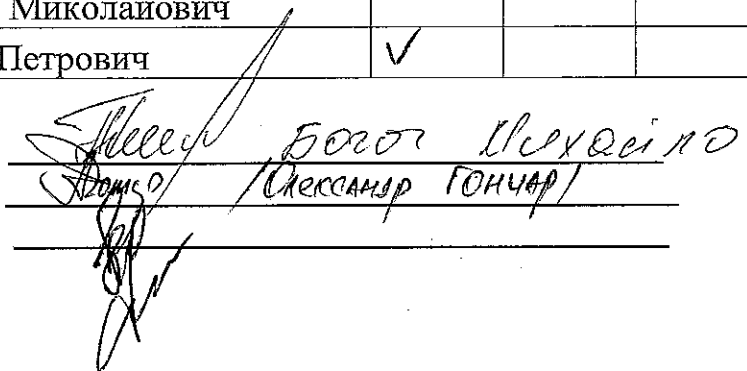 Миколайович
Петрович V
Богот Михайло
/Олександр ГОНЧАР/